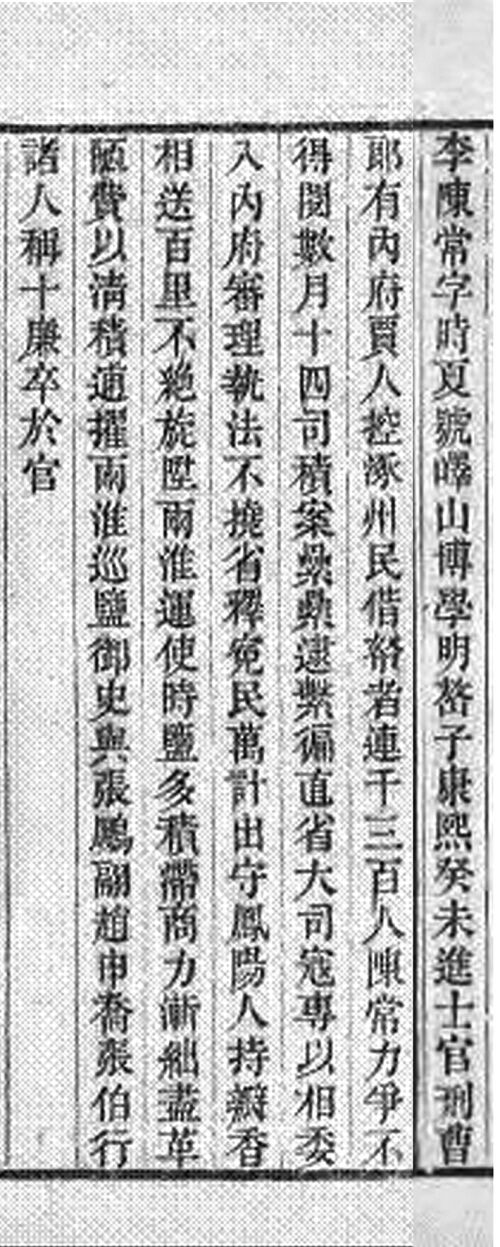 李陳常字時夏號嶧山博學明嶅子康熙癸未進士官刑曹
郎有內府賈人控涿州民借帑者連干三百人陳常力爭不
得閱數月十四司積案纍纍逮繫徧直省大司寇專以相委
入內府審理執法不撓省釋寃民萬計出守鳳陽人持瓣香
相送百里不絶旋陞兩淮運使時鹽多積滯商力漸絀盡革
陋費以清積逋擢兩淮巡鹽御史與張鵬翮趙申喬張伯行
諸人稱十廉卒於官